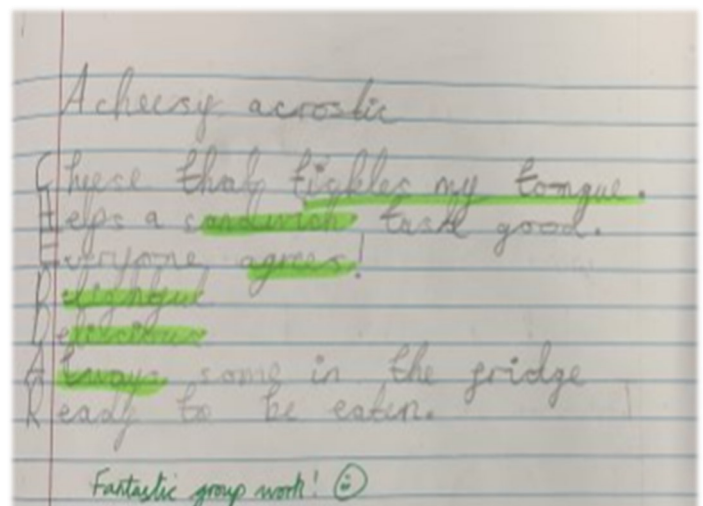 A cheesy acrostic
Cheese that tickles my tongue.
Helps a sandwich taste good.
Everyone agrees!
Delightful
Delicious
Always some in the fridge
Ready to be eaten.
Fantastic group work! ☺